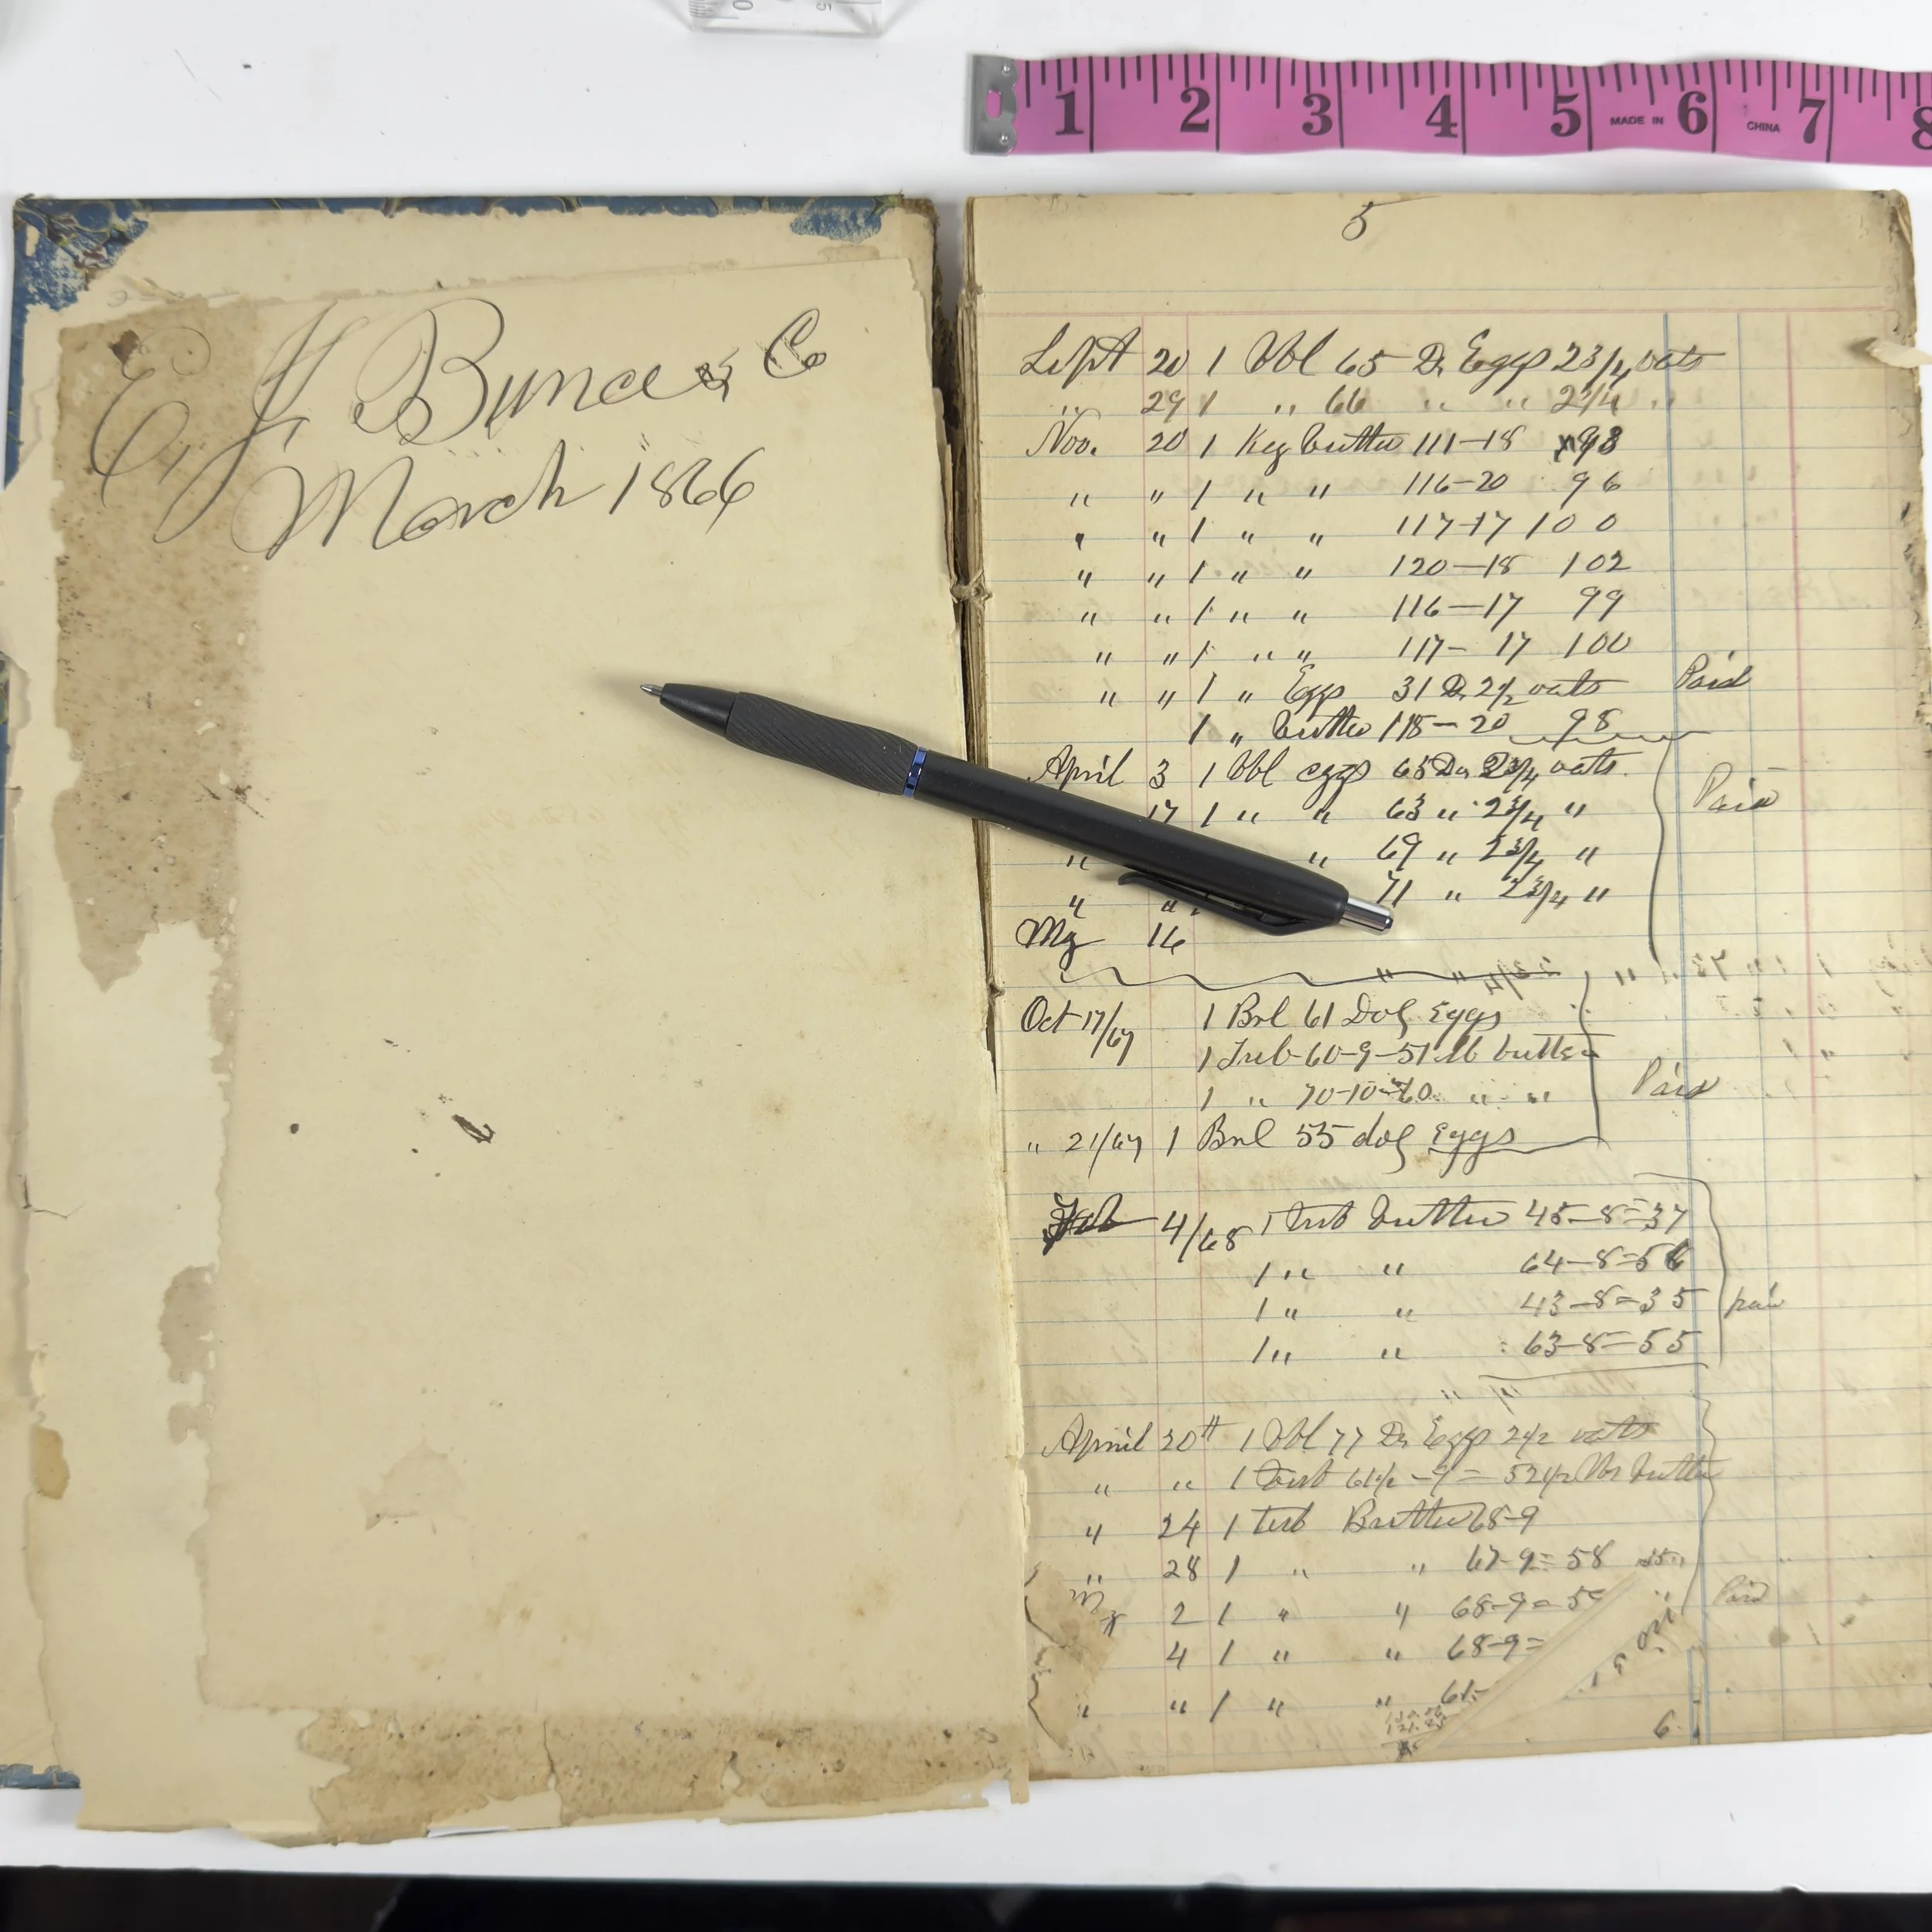 1 2 3 4 5 MADE IN 6 CHINA 7 8
E. J. Bunce & Co
March 1866
5
Sept 20 1 Bbl 65 Dz Eggs 2 3/4 oats
" 29 1 " 66 " " 2 3/4 "
Nov. 20 1 Keg butter 111-18 93
" " 1 " " 116-20 96
" " 1 " " 117-17 100
" " 1 " " 120-18 102
" " 1 " " 116-17 99
" " 1 " " 117-17 100
" " 1 " Eggs 31 Dz 2 1/2 oats Paid
1 " butter 118-20 98
April 3 1 Bbl eggs 65 Dz 2 3/4 oats
17 1 " " 63 " 2 3/4 " Paid
" " 69 " 2 3/4 "
" " 71 " 2 3/4 "
My 16
Oct 17/67 1 Brl 61 Doz Eggs
1 Tub 60-9-51 lb butter
1 " 70-10-60 " " Paid
" 21/67 1 Brl 55 doz Eggs
Feb 4/68 1 tub butter 45-8=37
1 " " 64-8=56
1 " " 43-8=35 paid
1 " " 63-8=55
April 20th 1 Bbl 77 Dz Eggs 2 1/2 oats
" " 1 Tub 61 1/2-9=52 1/2 lbs butter
" 24 1 tub Butter 68-9
" 28 1 " " 67-9=58
My 2 1 " " 68-9=59 " Paid
4 1 " " 68-9=
" " 1 " " 61-
6